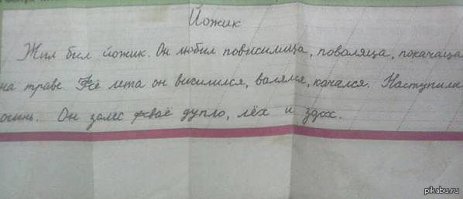 Йожик
Жил был йожик. Он любил повисилица, поволяца, покачаца
на траве. Всё лета он висилился, валялся, качался. Наступила
осинь. Он залес в сваё дупло, лёх и здох.
pikabu.ru